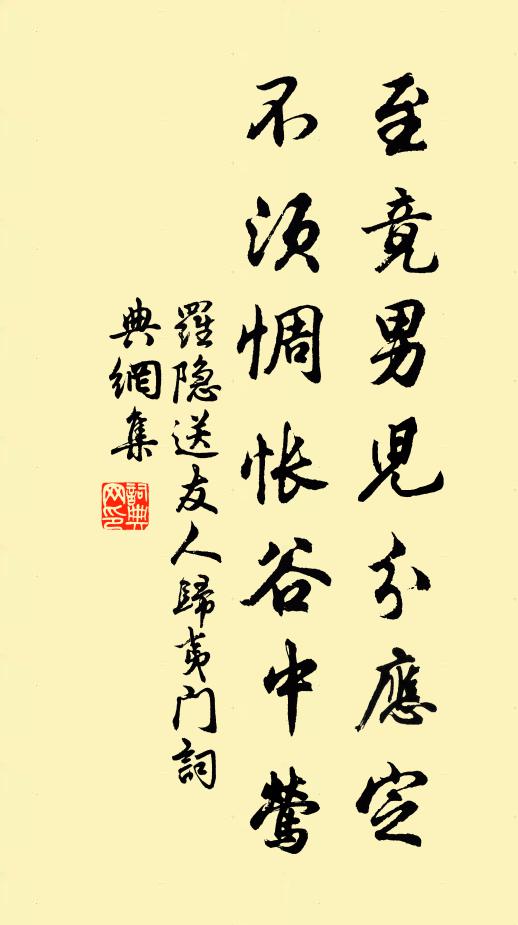 至竟男児分應定
不須惆悵谷中鶯
羅隐送友人歸夷门詞
典網集
詞典
网印